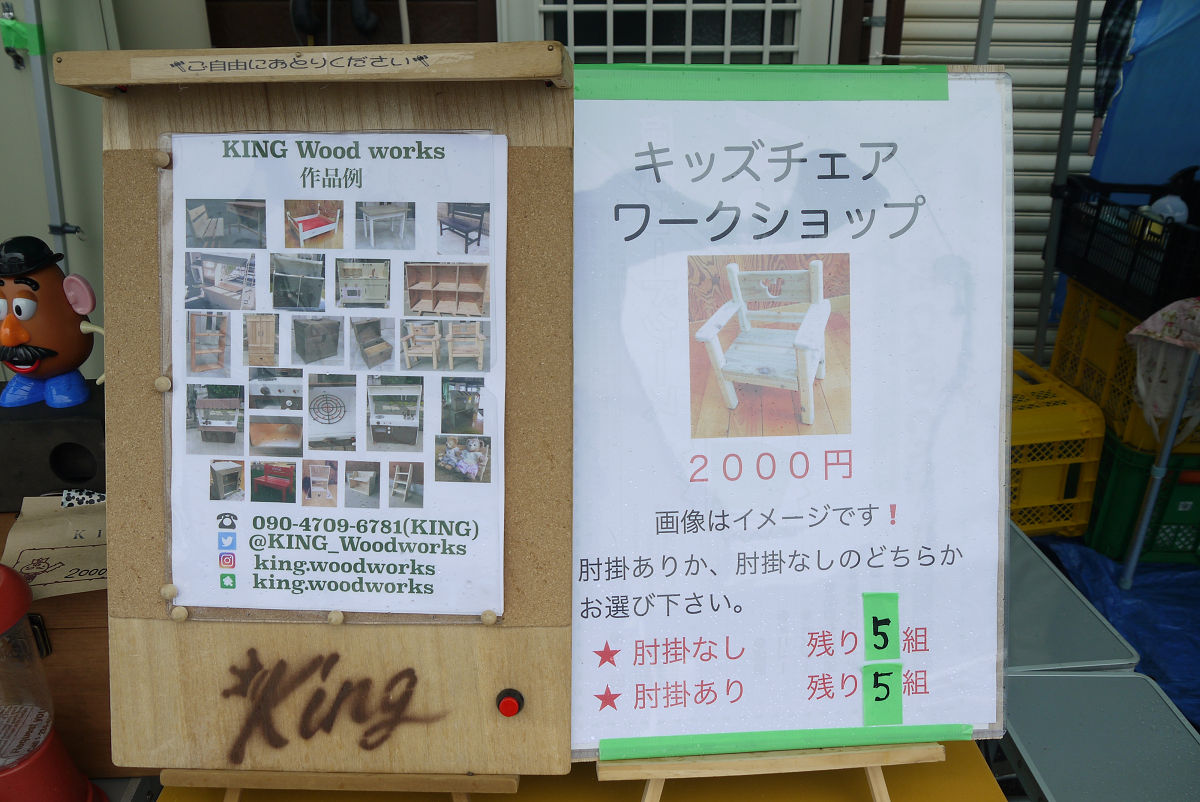 ご自由におとりください
KING Wood works
作品例
090-4709-6781(KING)
@KING_Woodworks
king.woodworks
king.woodworks
King
キッズチェア
ワークショップ
２０００円
画像はイメージです❗
肘掛ありか、肘掛なしのどちらか
お選び下さい。
★ 肘掛なし 残り5組
★ 肘掛あり 残り5組
KI
2000